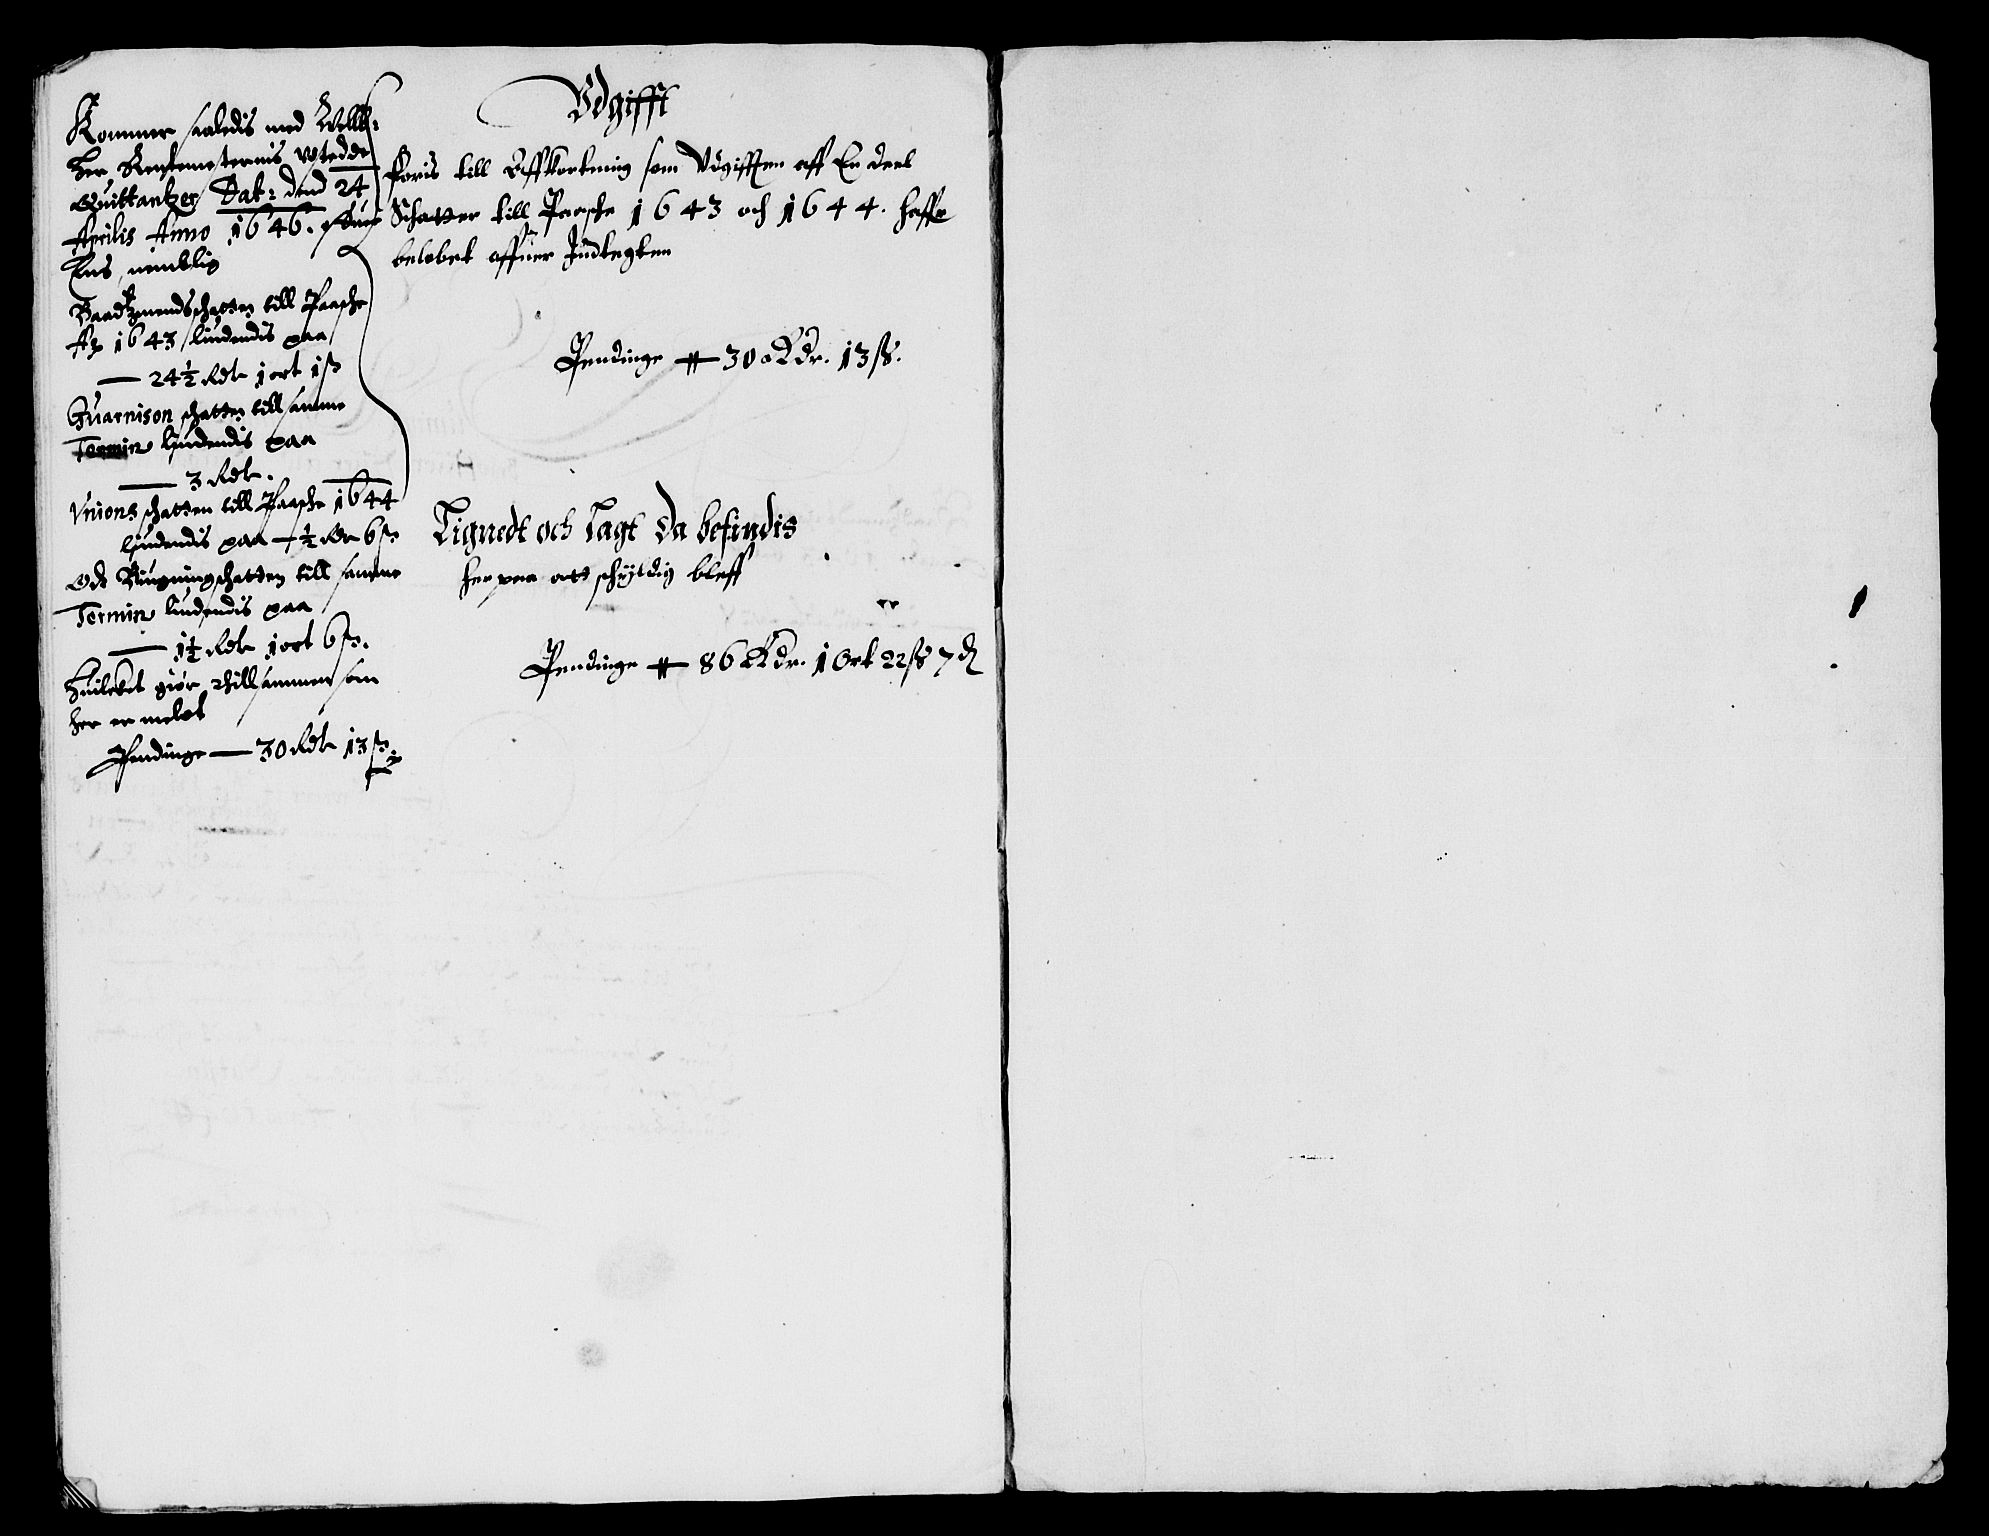 Kommer saaledis med Velbb:
her Rentemesternis vdstedde
Quittantzer Dat: dend 24
Aprilis Anno 1646. offuer
Ens, nemblig
Baadtzmendschatten till Paasche
Ao 1643 liudendis paa
— 24½ Rdr 1 ort 1 ß
Guarnison schatten till samme
Termin liudendis paa
— 3 Rdr.
Vnions schatten till Paasche 1644
liudendis paa — ½ Rdr 6 ß
Och Bÿugningschatten till samme
Termin liudendis paa
— 1½ Rdr 1 ort 6 ß.
Huilcket giør tillsammen som
her er meldt
Pendinge — 30 Rdr 13 ß.
Vdgifft
Føris till Affkortning som Vdgifften aff En deel
Schatter till Paasche 1643 och 1644. haffr
beløbet offuer Indtegten
Pendinge — 30 Rdr. 13 ß.
Lignedt och Lagt Da befindis
her paa att schÿldig bleff
Pendinge — 86 Rdr. 1 Ort 22 ß 7 d